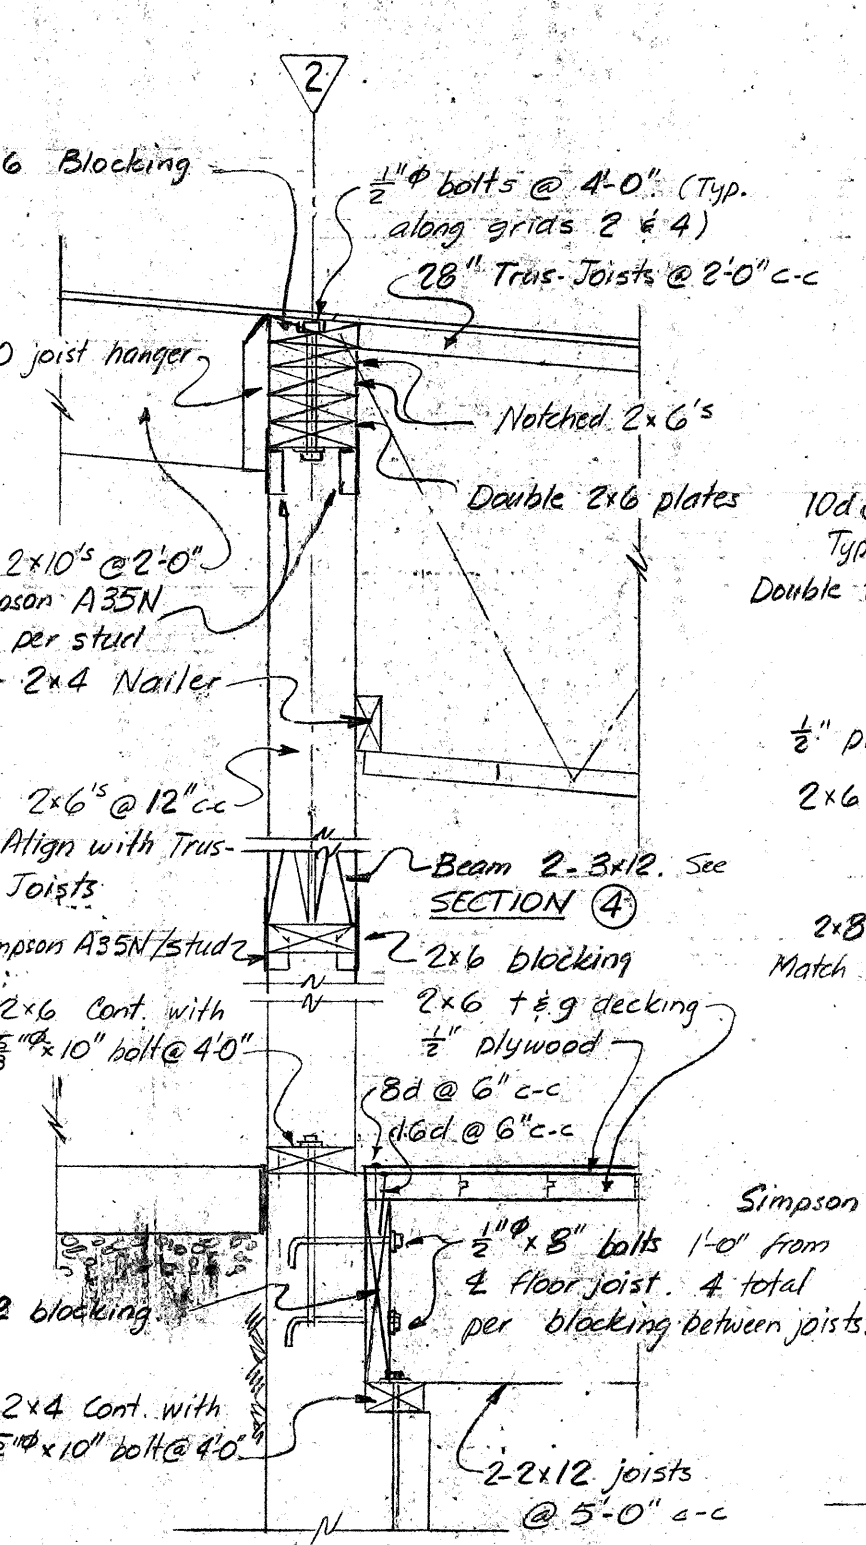 2
6 Blocking
½"φ bolts @ 4'-0". (Typ.
along grids 2 & 4)
28" Trus-Joists @ 2'-0" c-c
joist hanger
Notched 2x6's
Double 2x6 plates
10d
Typ
Double
2x10's @ 2'-0"
pson A35N
per stud
2x4 Nailer
½" p
2x6
2x6's @ 12" c-c
Align with Trus-
Joists
Beam 2-3x12. See
SECTION 4
2x8
Match
mpson A35N/stud
2x6 blocking
2x6 Cont. with
⅝"φx10" bolt @ 4'0"
2x6 t & g decking
½" plywood
8d @ 6" c-c
16d @ 6" c-c
Simpson
½"φ x 8" bolts 1'-0" from
℄ floor joist. 4 total
per blocking between joists.
blocking
2x4 Cont. with
"φx10" bolt @ 4'-0"
2-2x12 joists
@ 5'-0" c-c